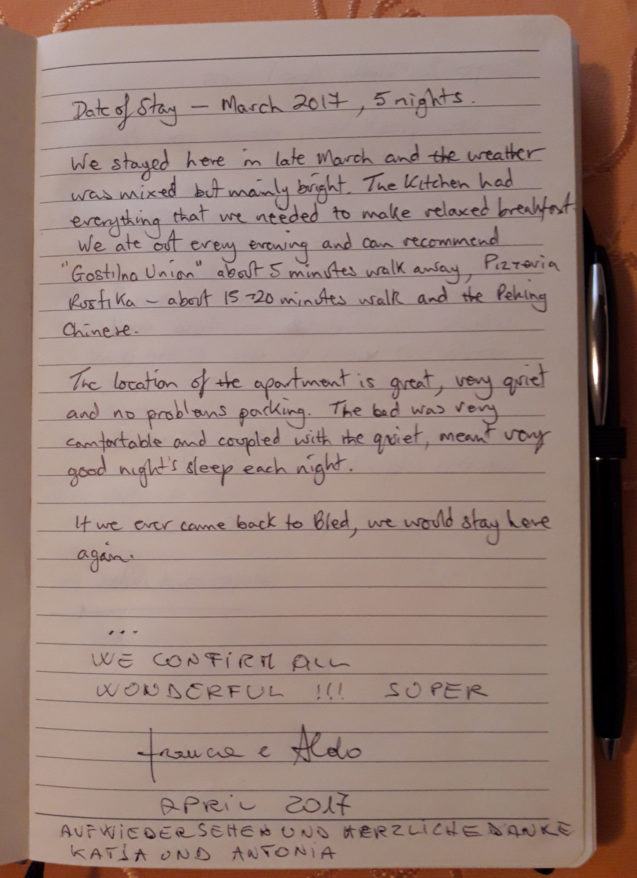 Date of Stay – March 2017, 5 nights.
We stayed here in late March and the weather
was mixed but mainly bright. The Kitchen had
everything that we needed to make relaxed breakfast.
We ate out every evening and can recommend
"Gostilna Union" about 5 minutes walk away, Pizzeria
Rustika – about 15-20 minutes walk and the Peking
Chinese.
The location of the apartment is great, very quiet
and no problems parking. The bed was very
comfortable and coupled with the quiet, meant very
good night's sleep each night.
If we ever came back to Bled, we would stay here
again.
...
WE CONFIRM ALL
WONDERFUL !!! SUPER
e Aldo
APRIL 2017
AUFWIEDERSEHEN UND HERZLICHE DANKE
KATJA UND ANTONIA